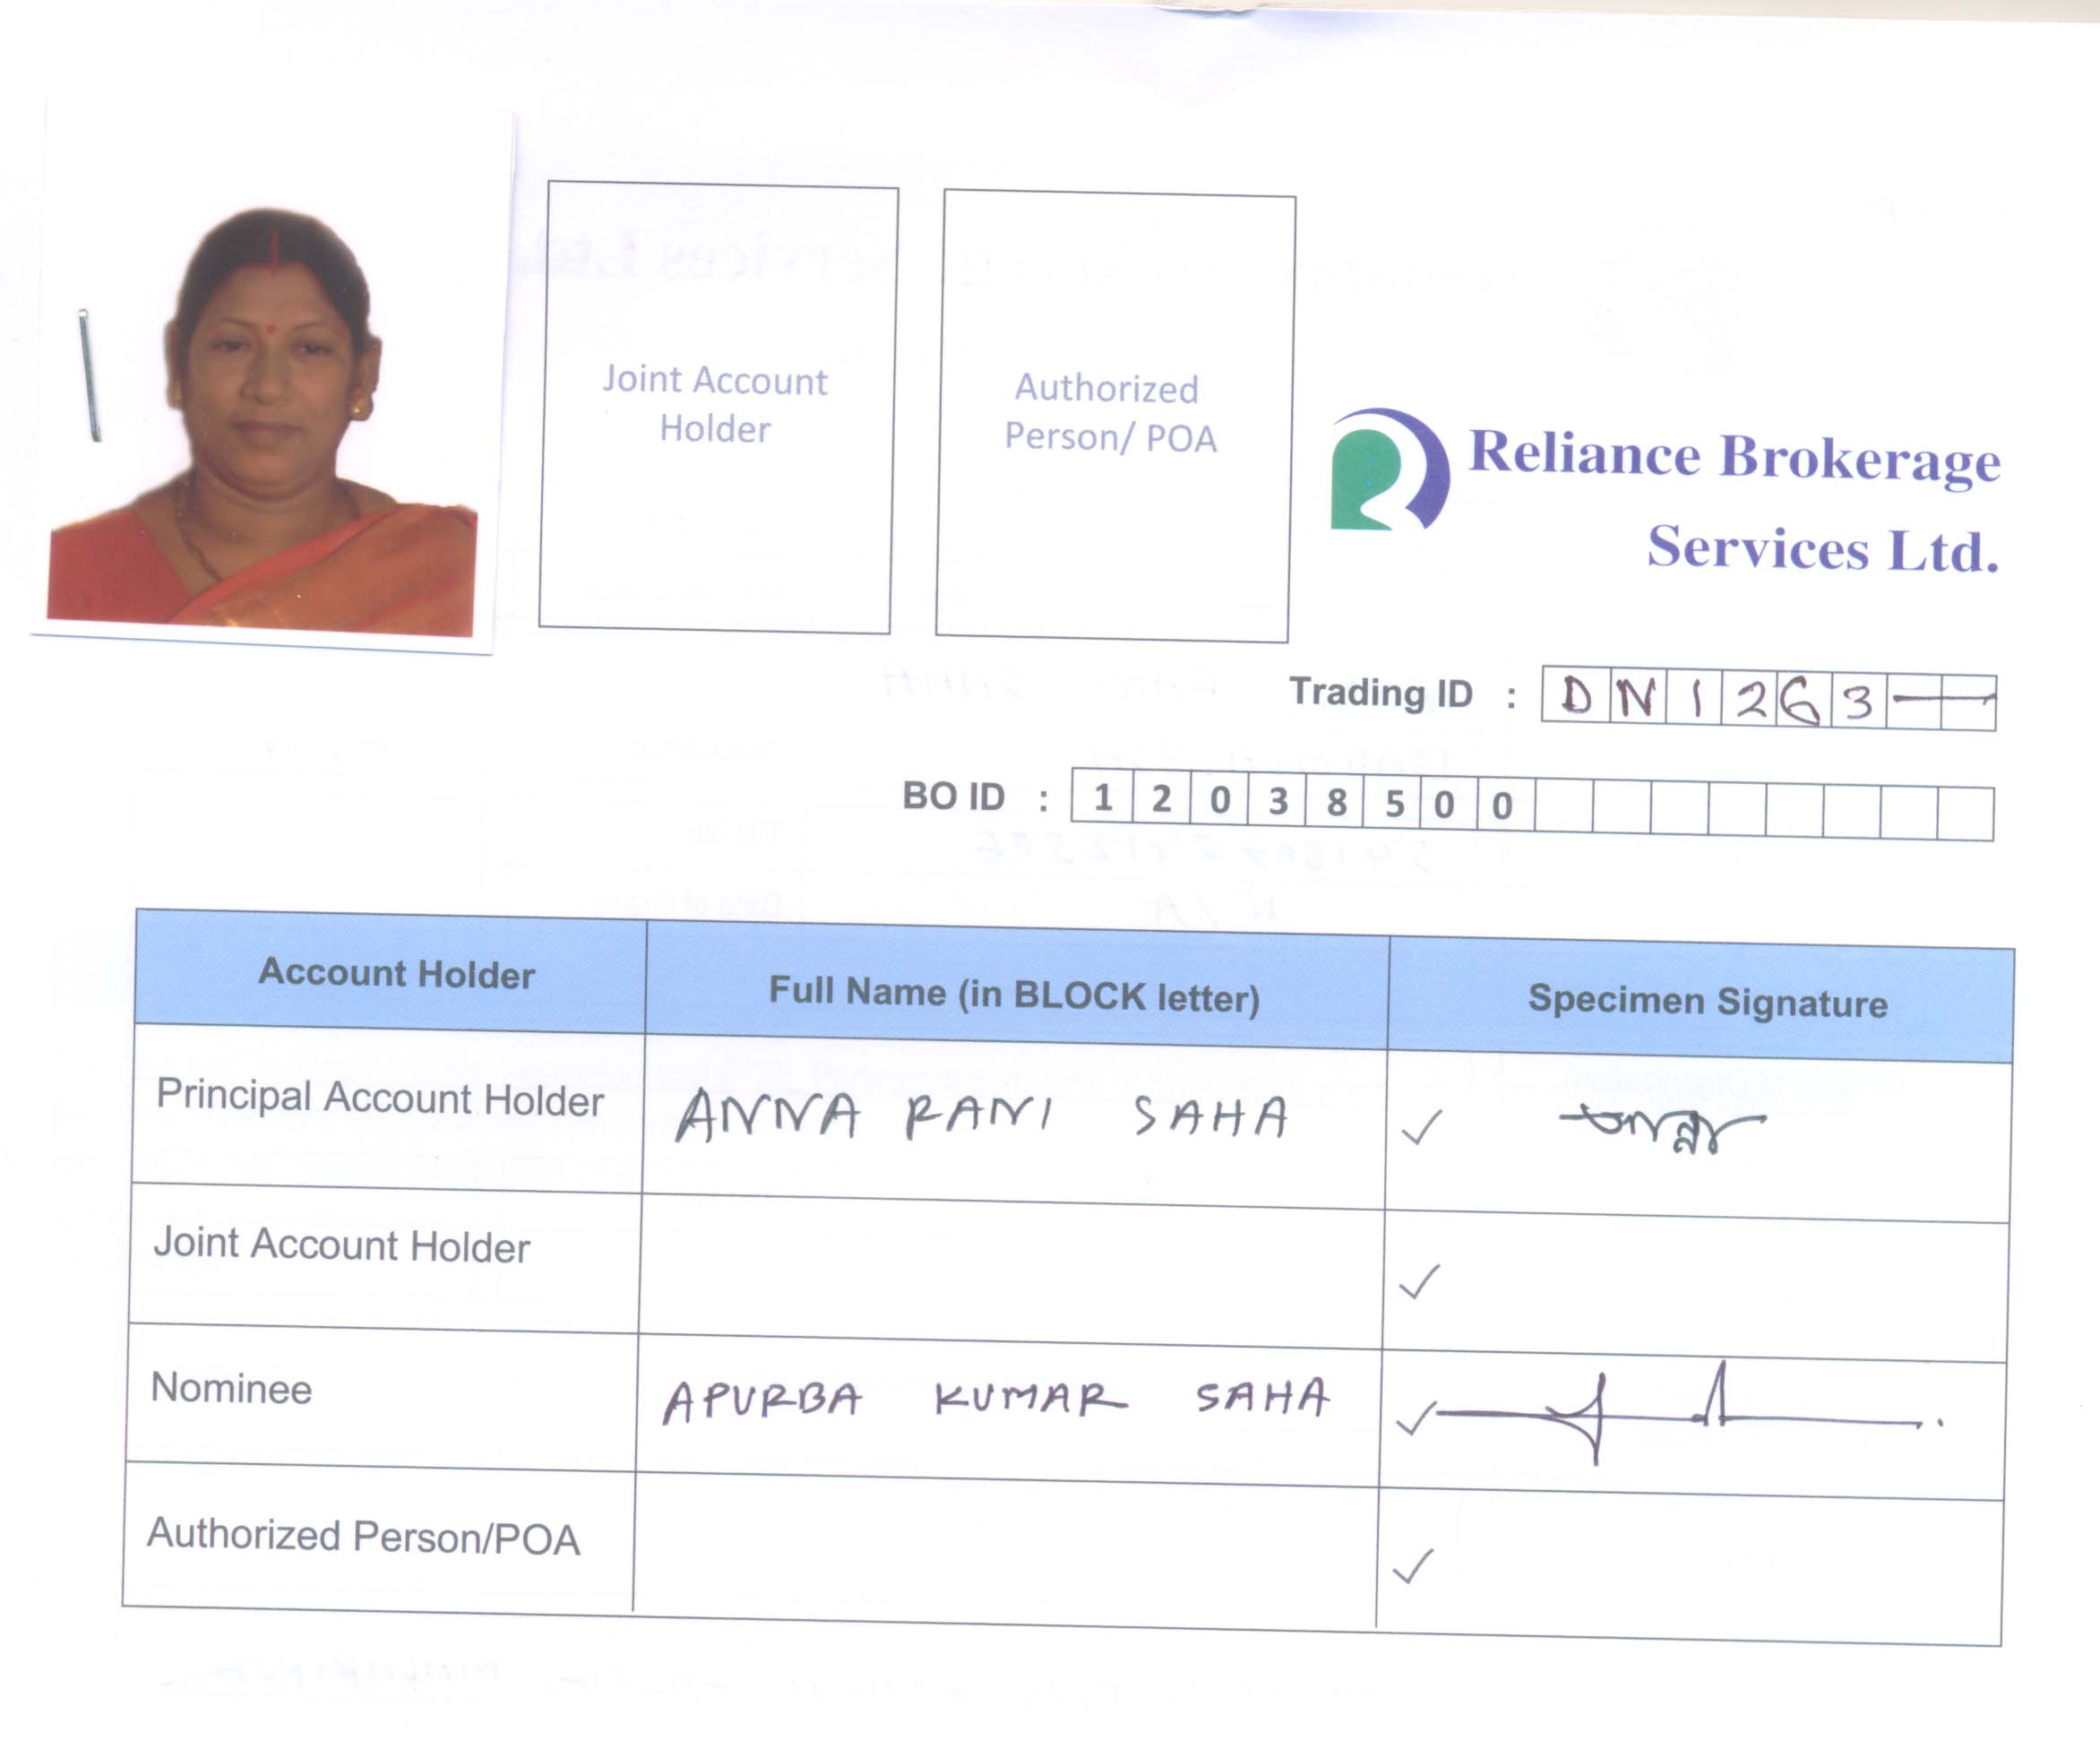 Joint Account
Holder
Authorized
Person/ POA
Reliance Brokerage
Services Ltd.
Trading ID : DN1263
BO ID : 12038500
Account Holder Full Name (in BLOCK letter) Specimen Signature
Principal Account Holder ANNA RANI SAHA ✓
Joint Account Holder ✓
Nominee APURBA KUMAR SAHA ✓
Authorized Person/POA ✓